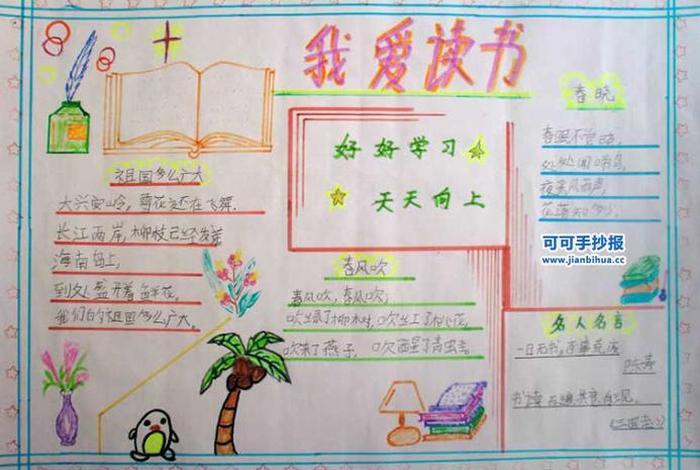 我爱读书
祖国多么广大
大兴安岭,雪花还在飞舞.
长江两岸,柳枝已经发芽
海南岛上,
到处盛开着鲜花,
我们的祖国多么广大.
好好学习
天天向上
春风吹
春风吹,春风吹,
吹绿了柳树,吹红了桃花,
吹来了燕子,吹醒了青蛙
春晓
春眠不觉晓,
处处闻啼鸟,
夜来风雨声,
花落知多少.
可可手抄报
www.jianbihua.cc
名人名言
一日无书,百事荒废
陈寿
书读百遍其意自见.
《三国志》